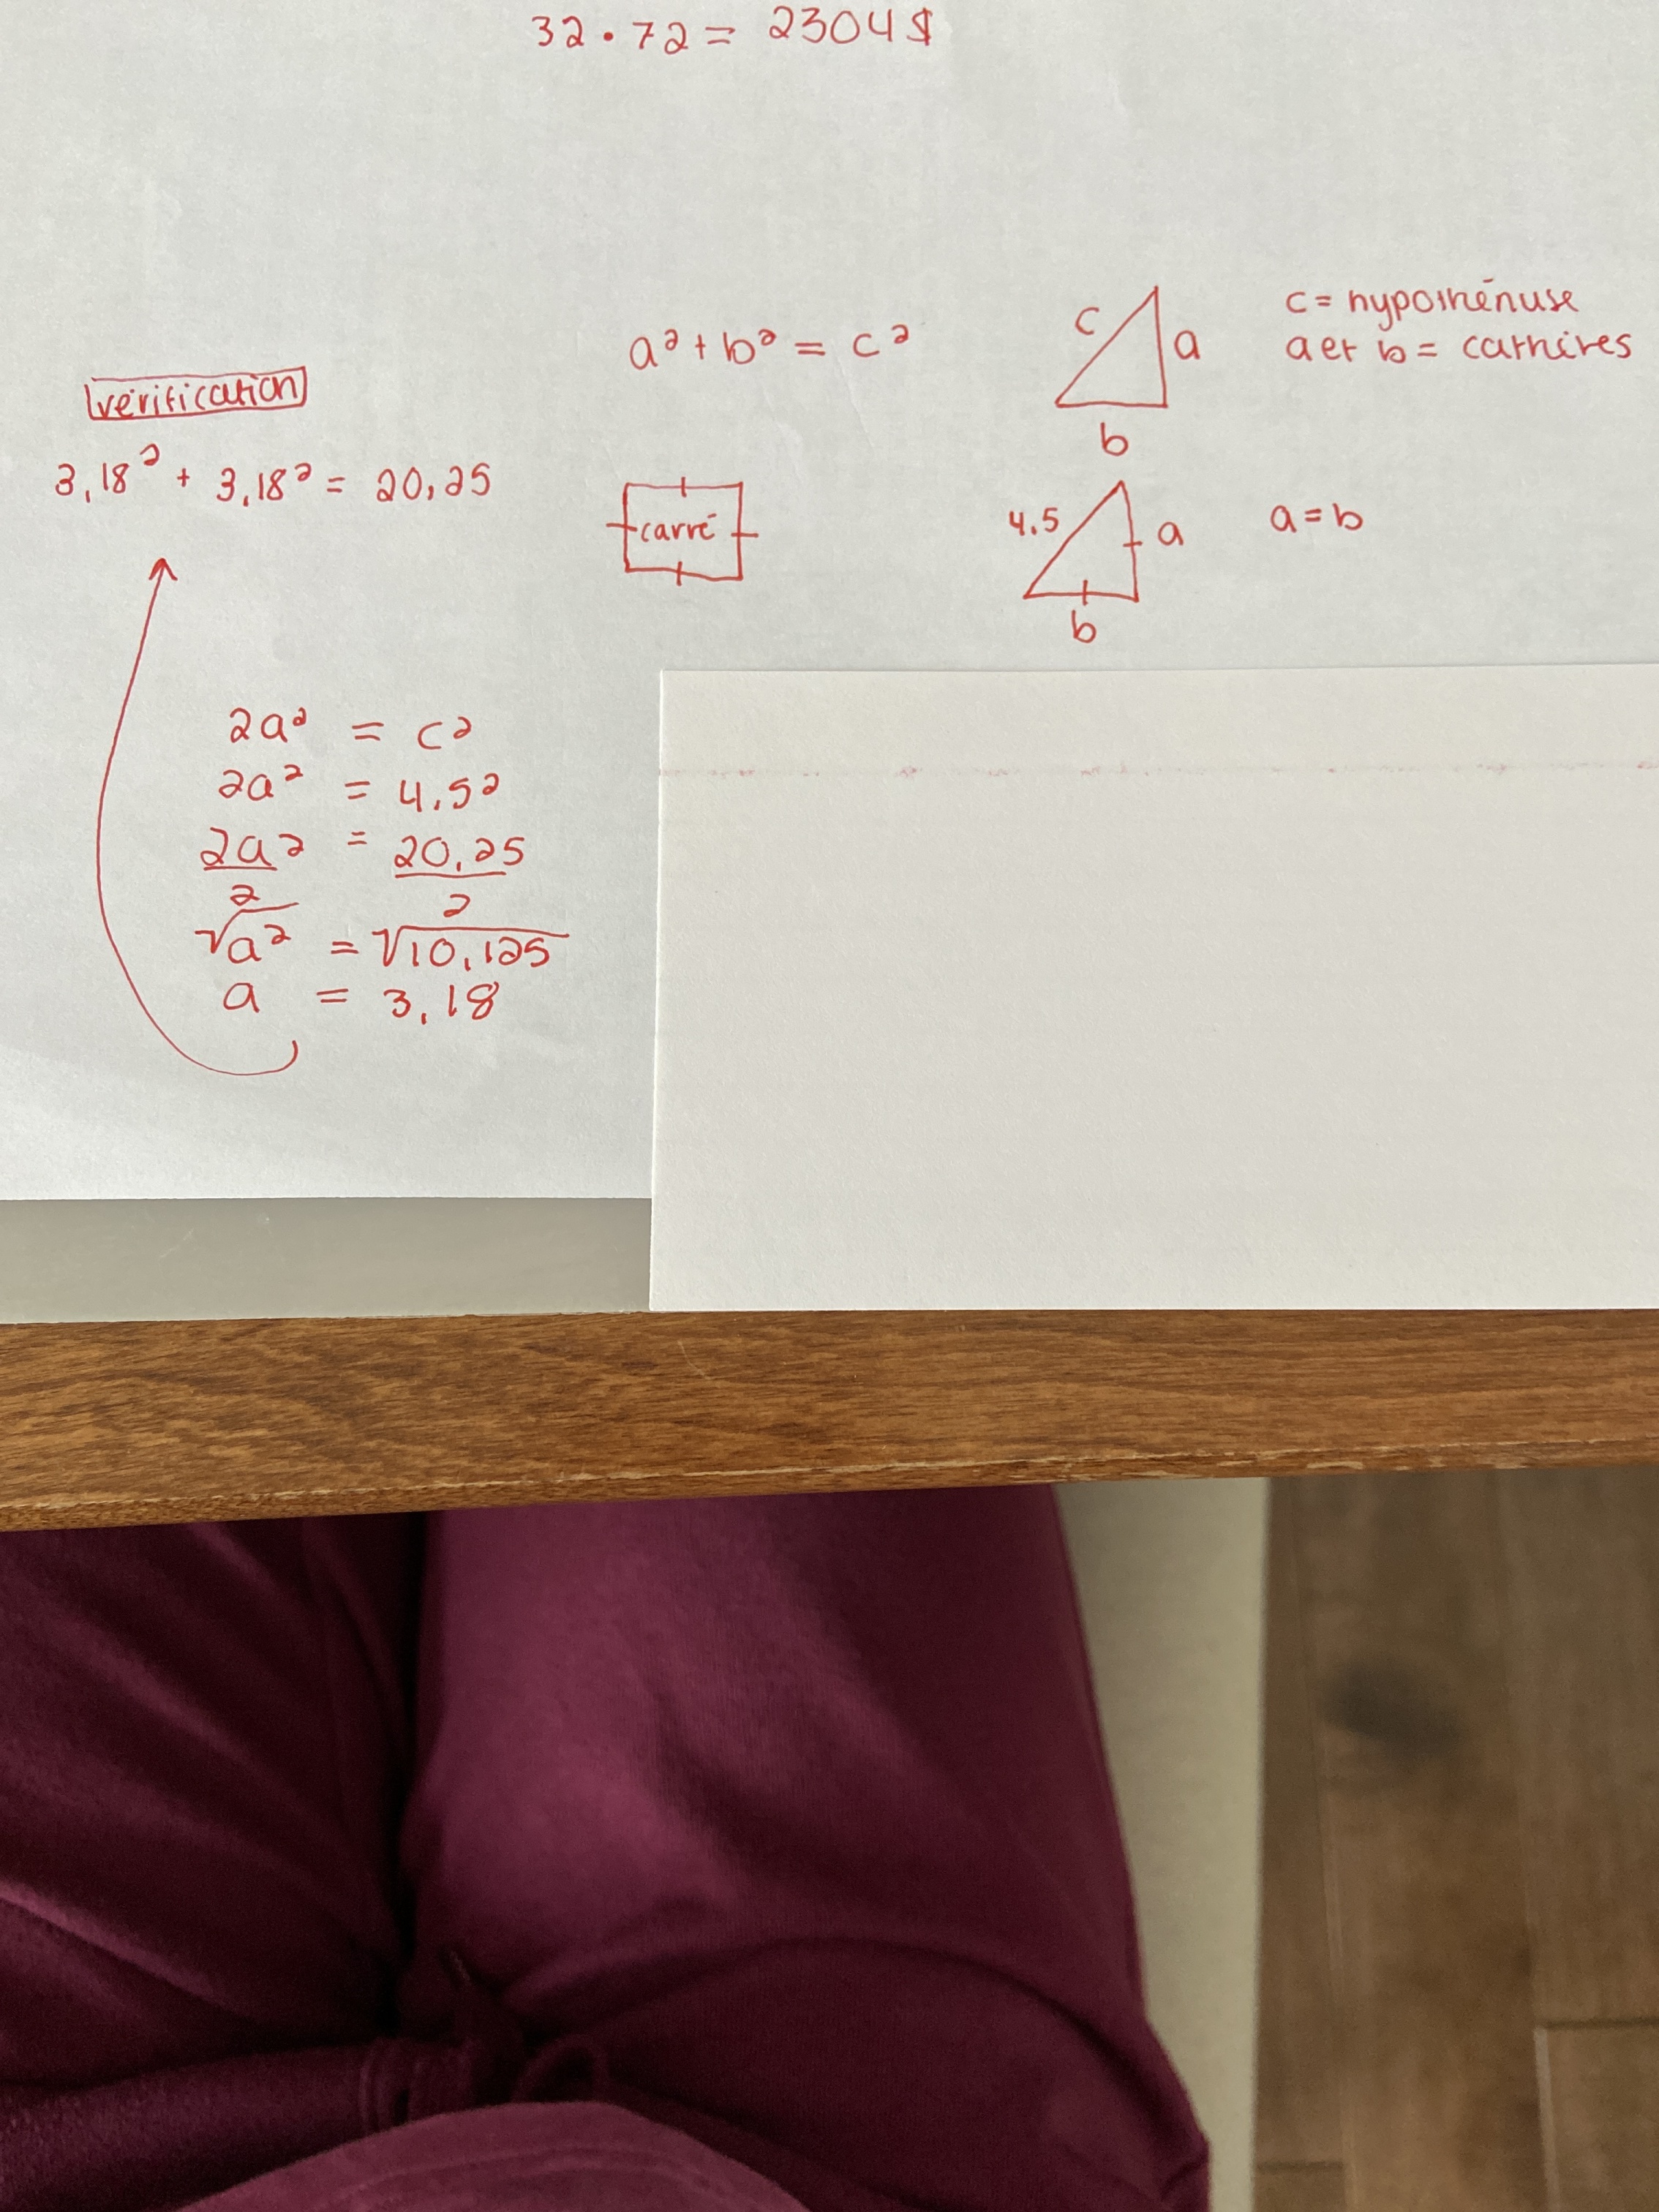 32 · 72 = 2304 $
a² + b² = c²
c
a
b
c = hypothénuse
a et b = cathètes
vérification
3,18² + 3,18² = 20,25
carré
4.5
a
b
a = b
2a² = c²
2a² = 4,5²
2a² = 20,25
2 2
√a² = √10,125
a = 3,18